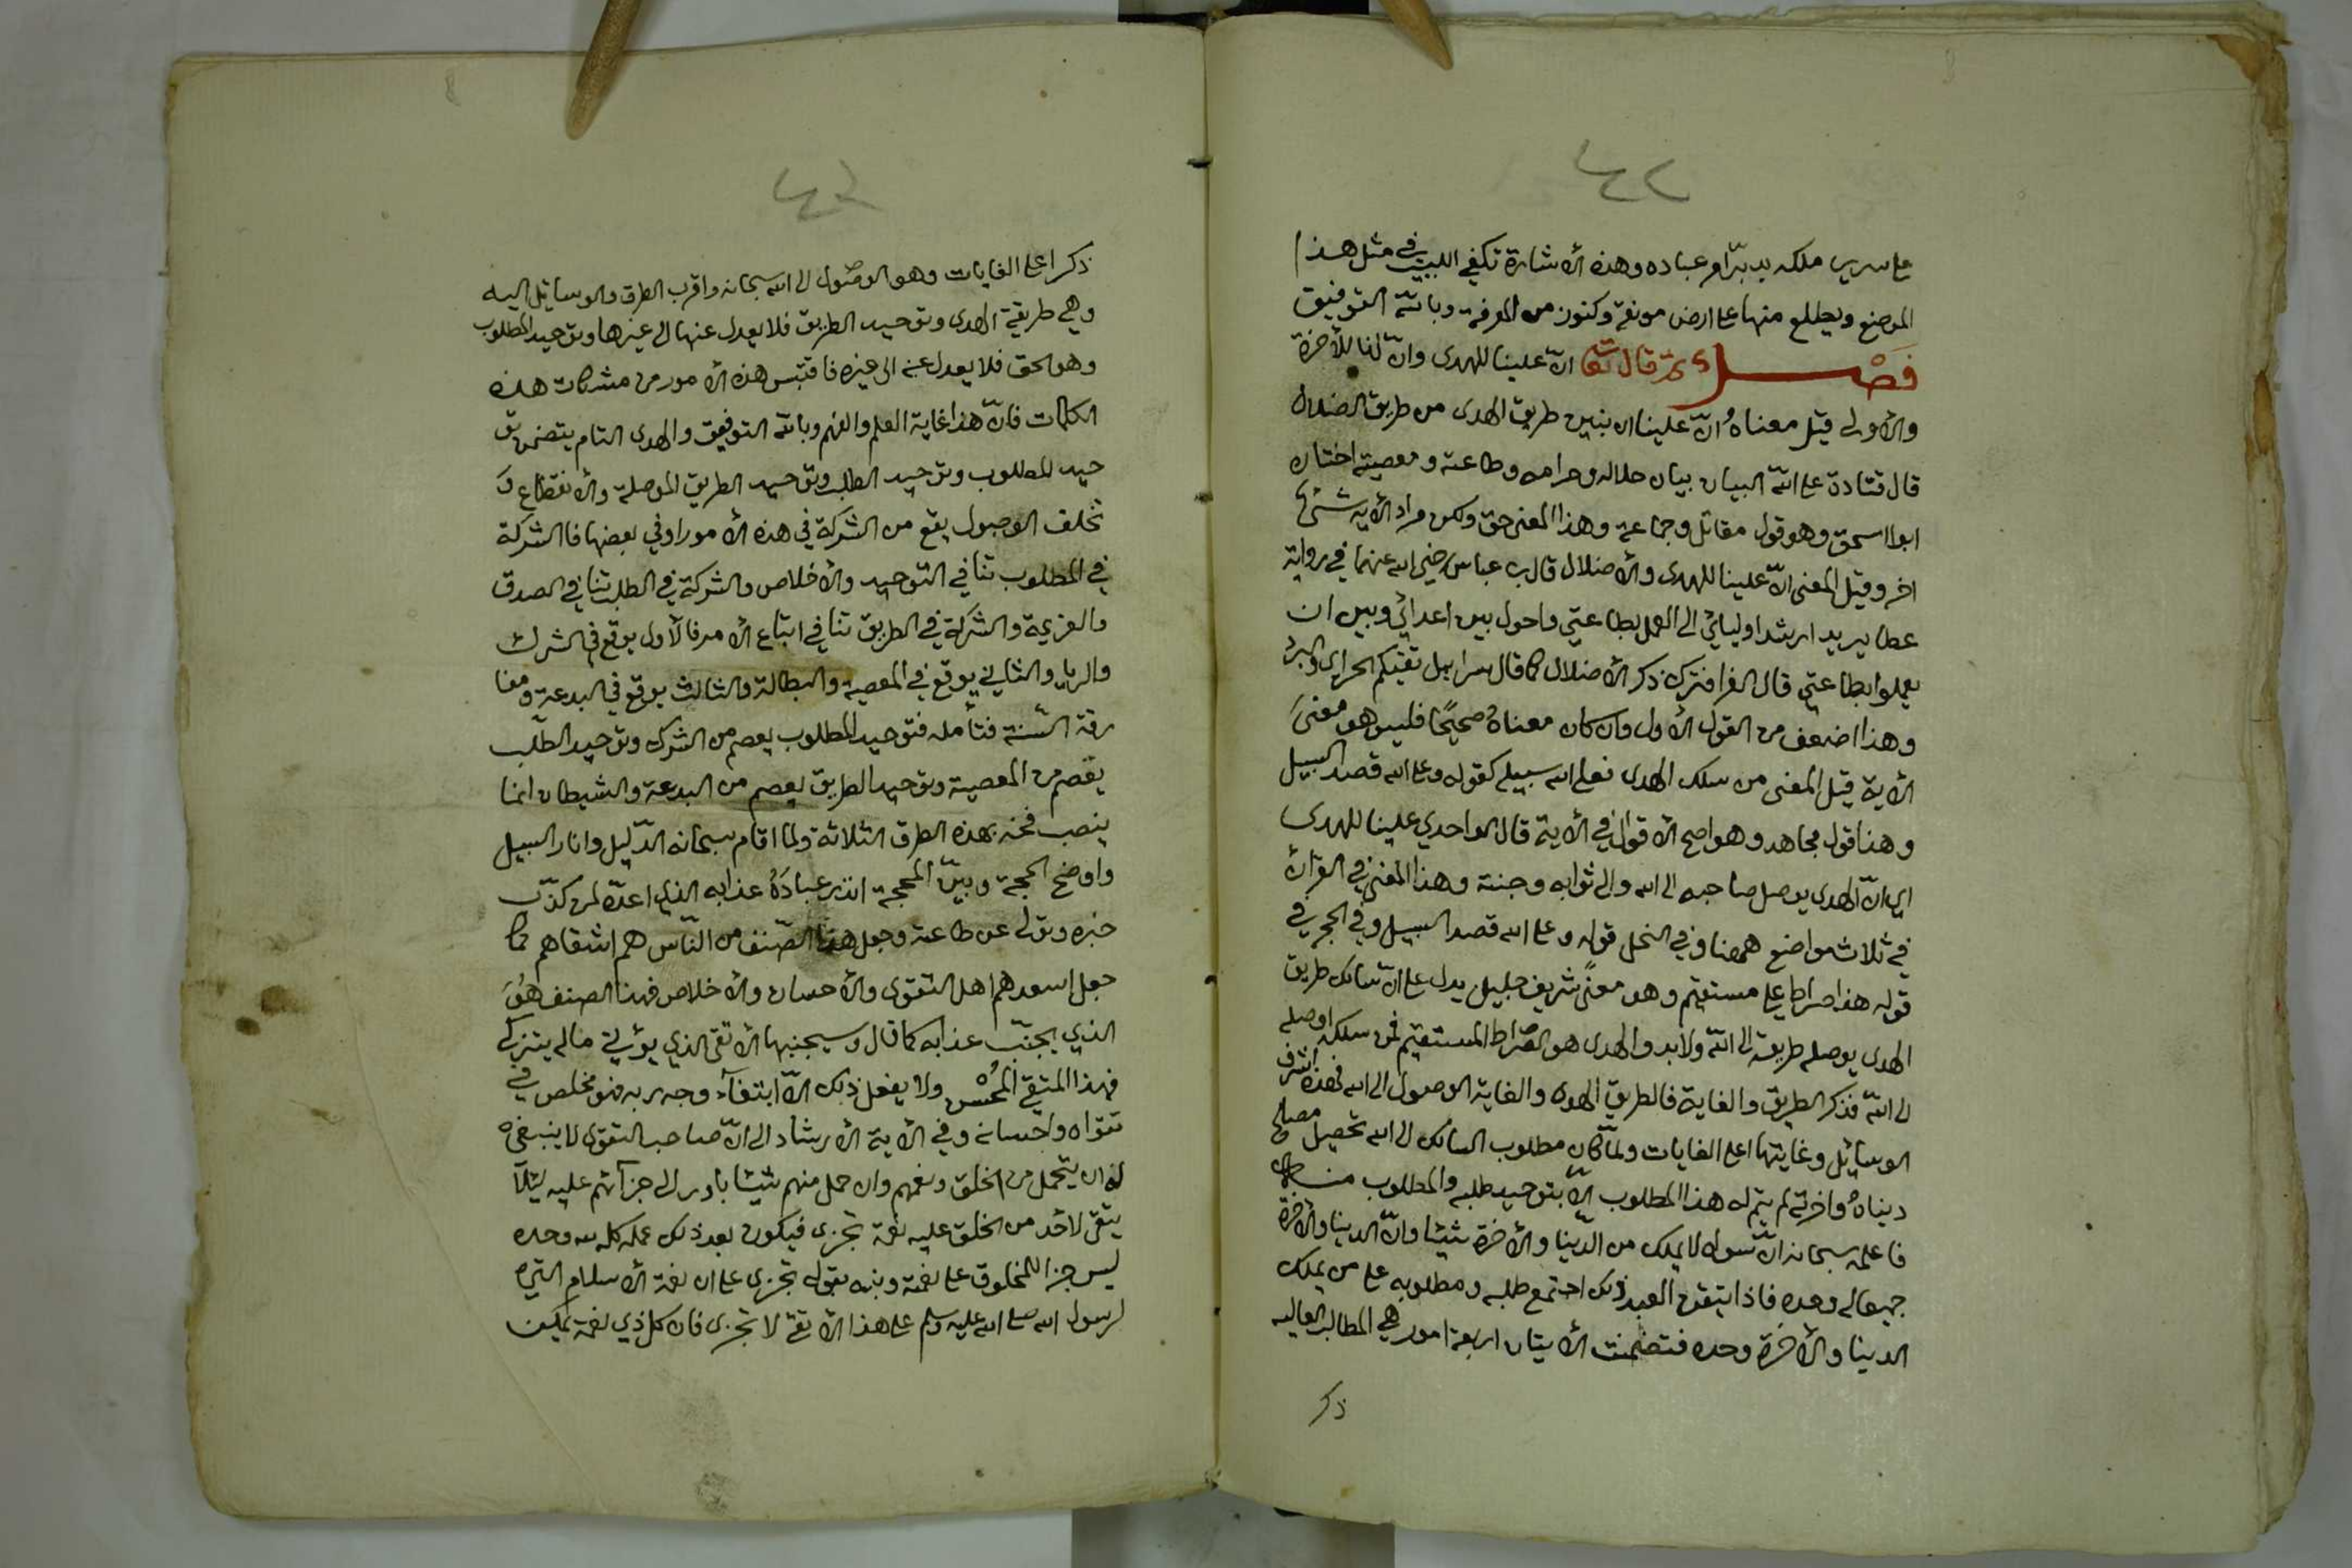 ٤٢
على سرير ملكه يدبّر امر عباده وهذه الاشارة تكفي اللبيب في مثل هذا
الموضع ويطلع منها على ارض مونقة وكنوز من المعرفة وبالله التوفيق
فَصْل ثم قال تعالى انّ علينا للهدى وانّ لنا للأخرة
والأولى قيل معناهُ انّ علينا ان نبين طريق الهدى من طريق الضلال
قال قتادة على اللّه البيان بيان حلاله وحرامه وطاعته ومعصيته اختاره
ابوا اسحق وهو قول مقاتل وجماعة وهذا المعنى حق ولكن مراد الأية شئ
اخر وقيل المعنى انّ علينا للهدى والأضلال قال ب عباس رضي الله عنهما في رواية
عطا يريد ارشد اوليائي الى العمل بطاعتي واحول بين اعدائي وبين ان
يعملوا بطاعتي قال الفرا فترك ذكر الأضلال كما قال سرابيل تقيكم الحر اي والبرد
وهذا اضعف من القول الأول وان كان معناهُ صحيحًا فليس هو معنىَ
الأية قيل المعنى من سلك الهدى فعلى الله سبيله كقوله وعلى الله قصد السبيل
وهذا قول مجاهد وهو اصح الاقوال في الأية قال الواحدي علينا للهدى
اي انّ الهدى يوصل صاحبه الى الله والى ثوابه وجنته وهذا المعنى في القران
في ثلاث مواضع ههمنا وفي النحل قوله وعلى الله قصد السبيل وفي الحجر في
قوله هذا صراط علي مستقيم وهو معنًى شريف جليل يدل على انّ سالك طريق
الهدى يوصله طريقه الى اللّه ولا بد والهدى هو الصّراط المستقيم فمن سلكه اوصله
الى اللّه فذكر الطريق والغاية فالطريق الهدى والغاية الوصول الى الله فهذه اشرف
الوسائل وغايتها اعلى الغايات ولمّا كان مطلوب السالك الى الله تحصيل مصالح
دنياهُ واخرته لم يتم له هذا المطلوب الاّ بتوحيد طلبه والمطلوب منه
فاعلمه سبحانه انّ سواه لا يملك من الدّنيا والأخرة شيئا وانّ الدنيا والأخرة
جميعا له وحده فاذا تيقن العبد ذلك اجتمع طلبه ومطلوبه على من يملك
الدنيا والأخرة وحده فتضمنت الأيتان اربعة امور هي المطالب العاليه
ذكر
٤٣
ذكر اعلى الغايات وهو الوصول الى الله سبحانه واقرب الطرق والوسايل اليه
وهي طريقة الهدى وتوحيد الطريق فلا يعدل عنها الى غيرها وتوحيد المطلوب
وهو الحق فلا يعدل عنه الى غيره فاقتبس هذه الأمور من مشكات هذه
الكلمات فانّ هذا غاية العلم والفهم وباللّه التوفيق والهدى التام يتضمن تو
حيد المطلوب وتوحيد الطلب وتوحيد الطريق الموصلة والأنقطاع وَ
تخلف الوصول يقع من الشركة في هذه الأمور اوفي بعضها فا الشركة
في المطلوب تنافي التوحيد والأخلاص والشركة في الطلب تنافي الصدق
والعزيمة والشركة في الطريق تنافي اتباع الأمر فالأول يوقع في الشرك
والريا والثاني يوقع في المعصية والبطالة والثالث يوقع في البدعة ومفا
رقة السّنة فتأمله فتوحيد المطلوب يعصم من الشرك وتوحيد الطّلب
يعصم من المعصية وتوحيد الطريق يعصم من البدعة والشيطان انما
ينصب فخه بهذه الطرق الثلاثة ولما اقام سبحانه الدّليل وانار السبيل
واوضح الحجة وبيّن المحجة انذر عبادَهُ عذابه الذي اعدّه لمن كذّب
خبره وتولى عن طاعته وجعل هذا الصّنف من النّاس هم اشقاهم كما
جعل اسعدهم اهل التقوى والأحسان والأخلاص فهذا الصنف هُوَ
الذي يجنّب عذابه كما قال وسيجنبها الأتقى الذي يؤتي ماله يتزكى
فهذا المتقي المُحْسن ولا يفعل ذلك الاّ ابتغآء وجه ربه فهو مخلص في
تقواه واحسانه وفي الأية الأرشاد الى انّ صاحب التقوى لا ينبغي
له ان يتحمل من الخلق ونعمهم وان حمل منهم شيئا بادر الى جزآئهم عليه ليئلاّ
يتقى لأحد من الخلق عليه نعمة تجزى فيكون بعد ذلك عمله كله لله وحده
ليس جزا للمخلوق على نعمته ونبه بقوله تجزى على ان نعمة الأسلام التي
لرسول الله صلى الله عليه وسلم على هذا الأتقى لا تجزى فان كل ذي نعمة يمكن